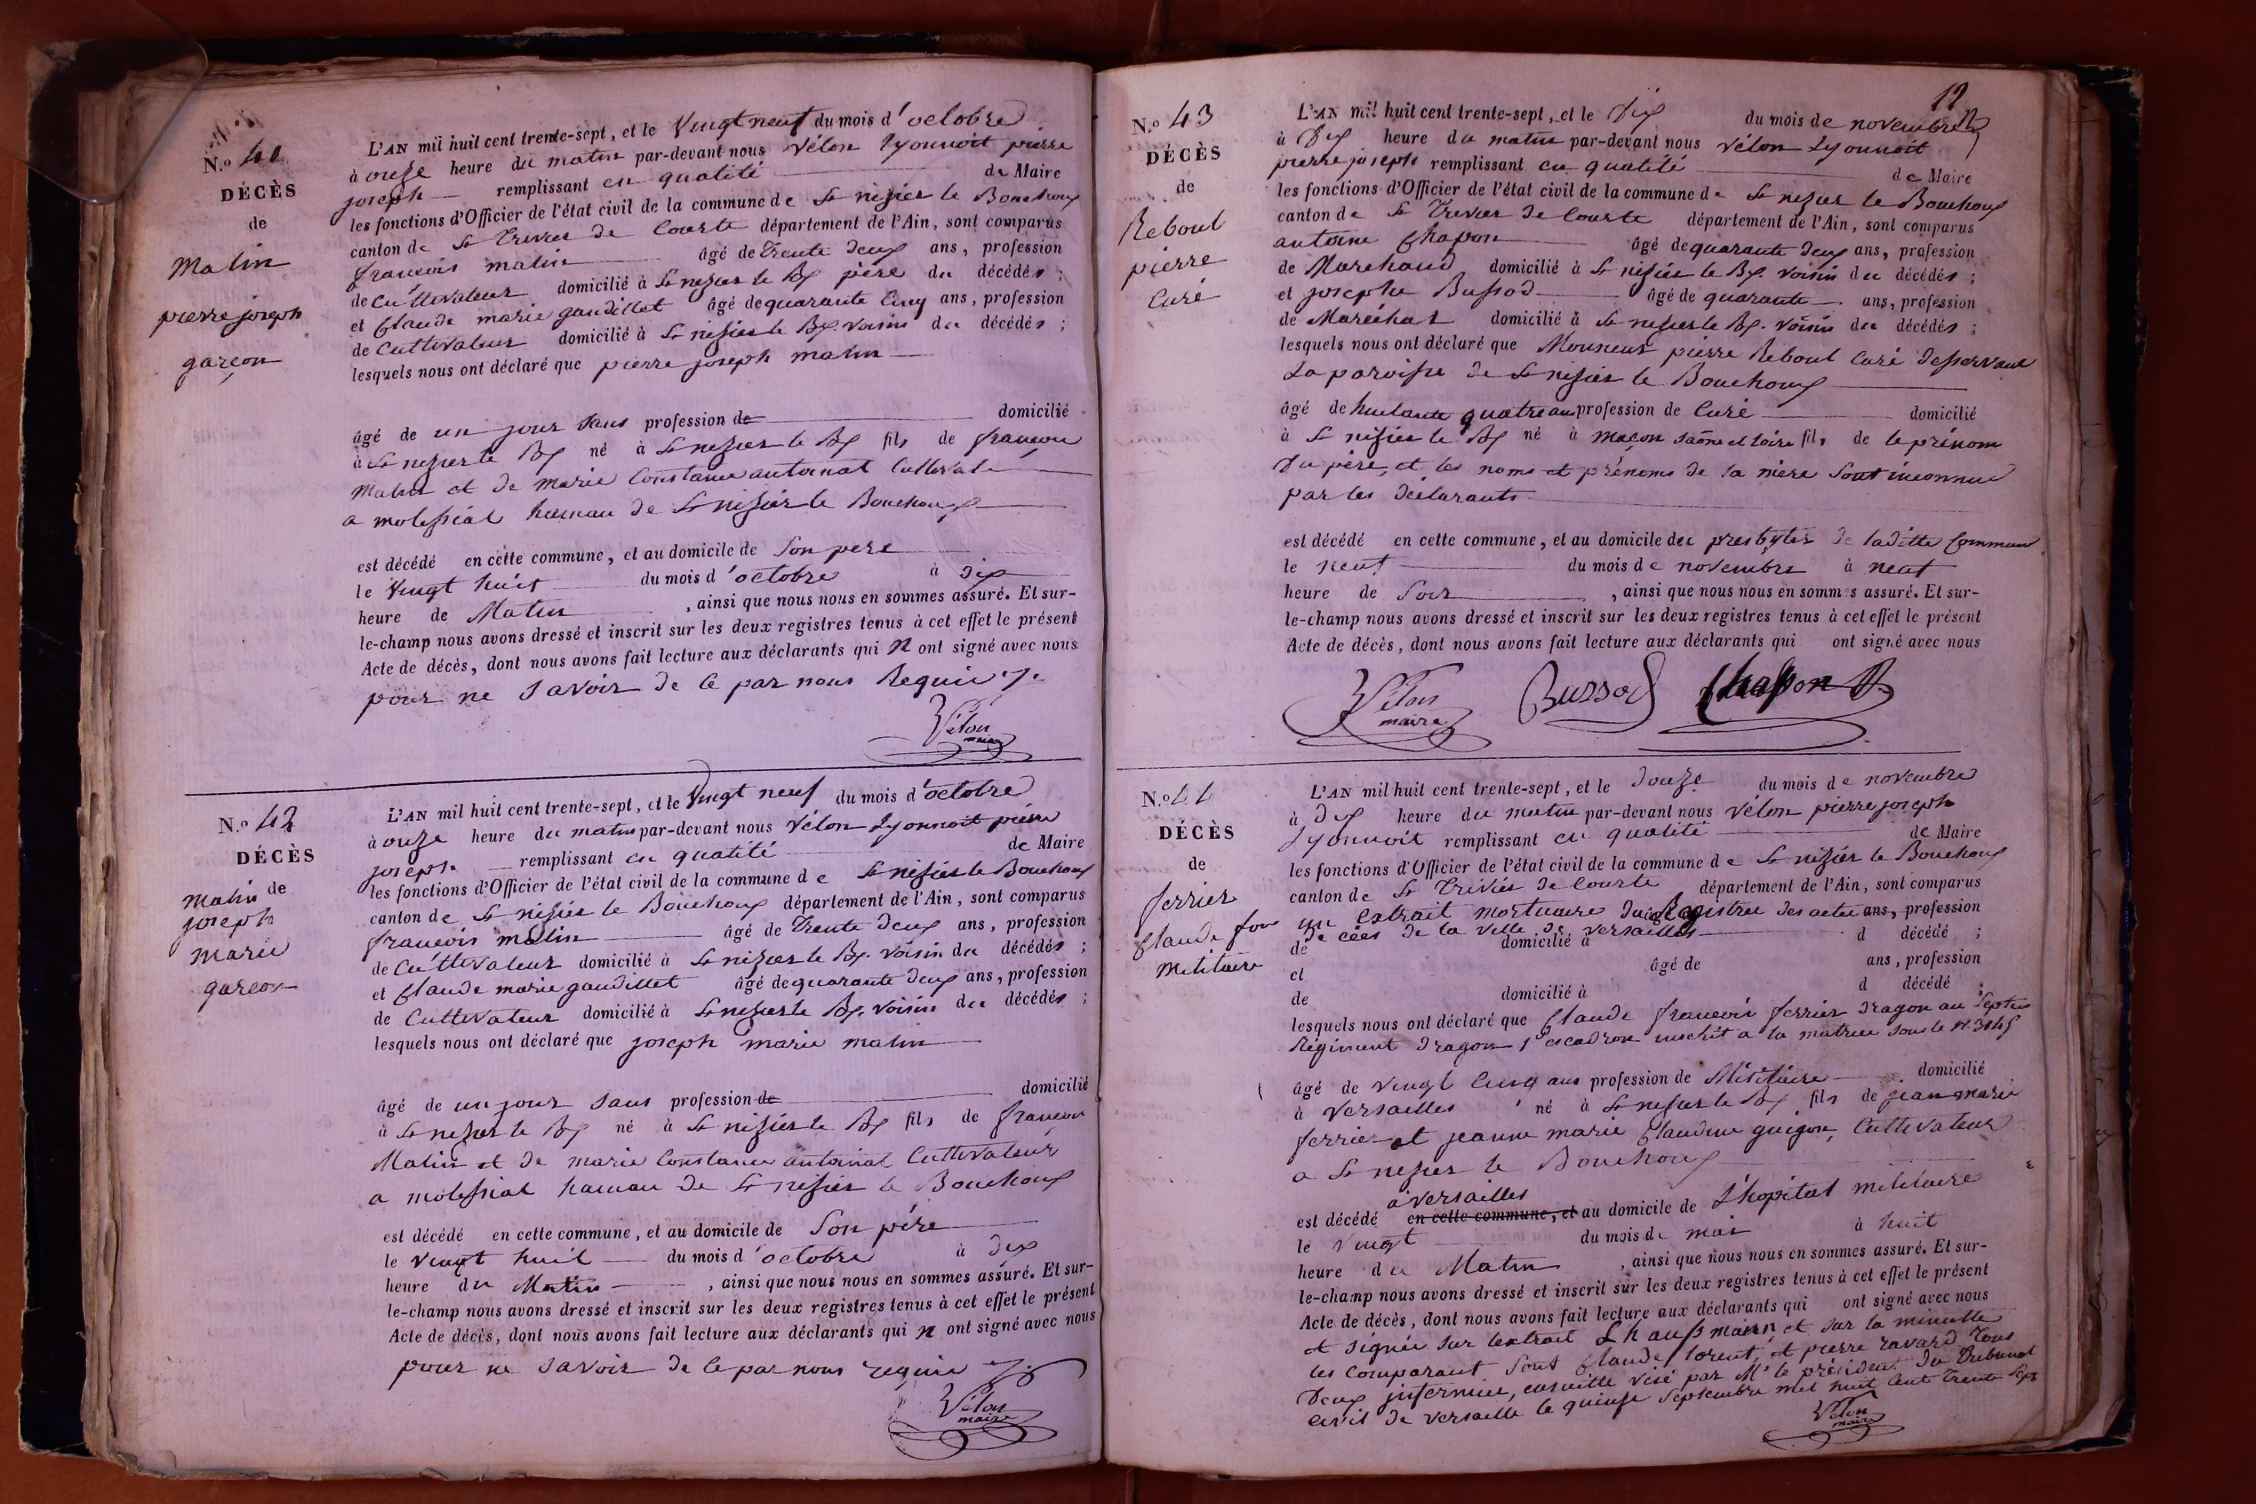 N.o 41
DÉCÈS
de
Malin
pierre joseph
garçon
L'AN mil huit cent trente-sept, et le Vingt neuf du mois d'octobre
à onze heure du matin par-devant nous Vélon Lyonnoit pierre
joseph remplissant en qualité de Maire
les fonctions d'Officier de l'état civil de la commune de St nizier le Bouchoux
canton de St Trivier de Courte département de l'Ain, sont comparus
francois malin âgé de Trente deux ans, profession
de Cultivateur domicilié à St nizier le Bx père du décédés ;
et Claude marie gaudillet âgé de quarante Cinq ans, profession
de Cultivateur domicilié à St nizier le Bx. voisin du décédés ;
lesquels nous ont déclaré que pierre joseph malin
âgé de un jour sans profession de domicilié
à St nizier le Bx né à St nizier le Bx fils de francois
Malin et de marie Constance antoinat Cultivat
a molissiat hameau de St nizier le Bouchoux
est décédé en cette commune, et au domicile de Son pere
le Vingt huit du mois d'octobre à dix
heure de Matin , ainsi que nous nous en sommes assuré. Et sur-
le-champ nous avons dressé et inscrit sur les deux registres tenus à cet effet le présent
Acte de décès, dont nous avons fait lecture aux déclarants qui n ont signé avec nous
pour ne savoir de ce par nous Requis
Vélon
maire
N.o 42
DÉCÈS
de
Malin
joseph
marie
garçon
L'AN mil huit cent trente-sept, et le Vingt neuf du mois d'octobre
à onze heure du matin par-devant nous Vélon Lyonnoit pierre
joseph remplissant en qualité de Maire
les fonctions d'Officier de l'état civil de la commune de St nizier le Bouchoux
canton de St nizier le Bouchoux département de l'Ain, sont comparus
francois malin âgé de Trente deux ans, profession
de Cultivateur domicilié à St nizier le Bx. voisin du décédés ;
et Claude marie gaudillet âgé de quarante deux ans, profession
de Cultivateur domicilié à St nizier le Bx. voisin du décédés ;
lesquels nous ont déclaré que joseph marie malin
âgé de un jour sans profession de domicilié
à St nizier le Bx né à St nizier le Bx fils de francois
Malin et de marie Constance antoinat Cultivateur
a molissiat hameau de St nizier le Bouchoux
est décédé en cette commune, et au domicile de Son père
le vingt huit du mois d'octobre à dix
heure du Matin , ainsi que nous nous en sommes assuré. Et sur-
le-champ nous avons dressé et inscrit sur les deux registres tenus à cet effet le présent
Acte de décès, dont nous avons fait lecture aux déclarants qui n ont signé avec nous
pour ne savoir de ce par nous requis
Vélon
maire
12
N.o 43
DÉCÈS
de
Reboul
pierre
Curé
L'AN mil huit cent trente-sept, et le Dix du mois de novembre
à Dix heure du matin par-devant nous Vélon Lyonnoit
pierre joseph remplissant en qualité de Maire
les fonctions d'Officier de l'état civil de la commune de St nizier le Bouchoux
canton de St Trivier de Courte département de l'Ain, sont comparus
antoine Chapon âgé de quarante deux ans, profession
de Marchand domicilié à St nizier le Bx. voisin du décédés ;
et josephe Bussod âgé de quarante ans, profession
de Maréchal domicilié à St nizier le Bx. voisin du décédés ;
lesquels nous ont déclaré que Monsieur pierre Reboul Curé desservant
La paroisse de St nizier le Bouchoux
âgé de huitante quatre ans profession de Curé domicilié
à St nizier le Bx né à maçon saône et loire fils de le prénom
Du père, et les noms et prénoms de la mère sont inconnue
par les déclarants
est décédé en cette commune, et au domicile du presbyter de ladite Commune
le neuf du mois de novembre à neuf
heure de Soir , ainsi que nous nous en sommes assuré. Et sur-
le-champ nous avons dressé et inscrit sur les deux registres tenus à cet effet le présent
Acte de décès, dont nous avons fait lecture aux déclarants qui ont signé avec nous
Vélon
maire
Bussod
Chapon
N.o 44
DÉCÈS
de
ferrier
Claude fois
Militaire
L'AN mil huit cent trente-sept, et le douze du mois de novembre
à dix heure du matin par-devant nous Vélon pierre joseph
Lyonnoit remplissant en qualité de Maire
les fonctions d'Officier de l'état civil de la commune de St nizier le Bouchoux
canton de St Trivier de Courte département de l'Ain, sont comparus
un extrait mortuaire du Registre des actes ans, profession
de cées de la ville de versailles
de domicilié à d décédé ;
et âgé de ans, profession
de domicilié à d décédé ;
lesquels nous ont déclaré que Claude francois ferrier dragon au Septie
Régiment dragon 1er escadron inscrit a la matrice sous le N. 3145
âgé de vingt Cinq ans profession de Militaire domicilié
à Versailles né à St nizier le Bx fils de jean marie
ferrier et jeanne marie Claudine guigon, Cultivateur
a St nizier le Bouchoux
à versailles
est décédé en cette commune, et au domicile de L'hopital militaire
le Vingt du mois de mai à huit
heure du Matin , ainsi que nous nous en sommes assuré. Et sur-
le-champ nous avons dressé et inscrit sur les deux registres tenus à cet effet le présent
Acte de décès, dont nous avons fait lecture aux déclarants qui ont signé avec nous
et signée sur lextrait et sur la minutte
les Comparant sont Claude lorent, et pierre ravard Tous
Deux infermier, ensuitte visé par Mr le président du Tribunal
Civil de versaille le quinze Septembre mil huit Cent Trente Sept
Vélon
maire